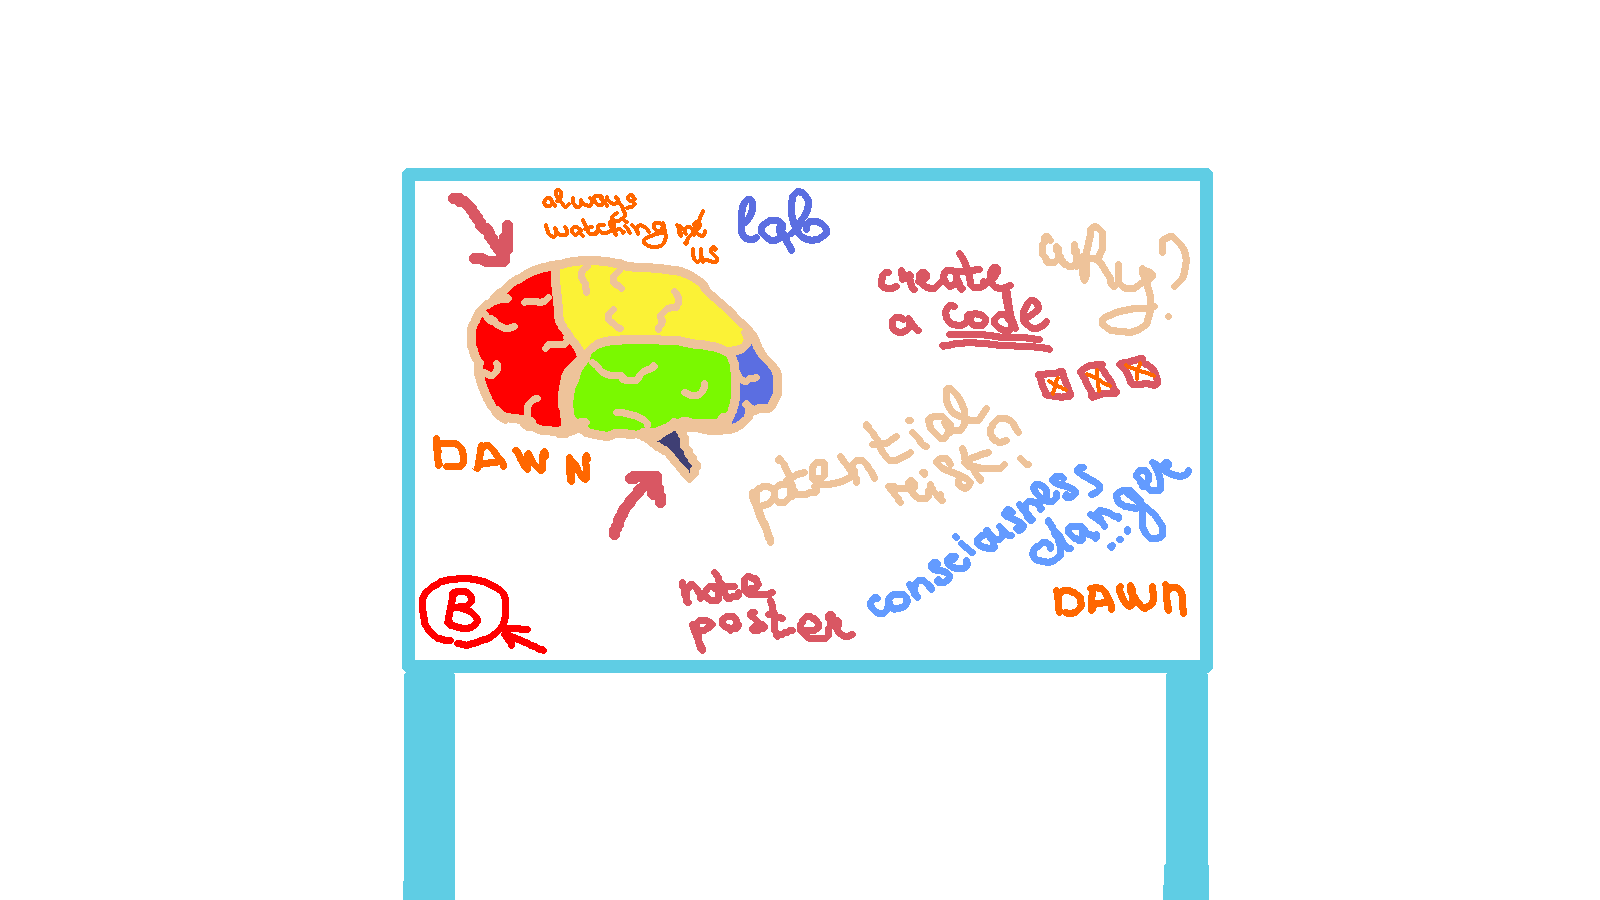 always
watching me
us
lab
create
a code
why?
DAWN
potential
risk?
consciousness
danger...
B
note
poster
DAWN